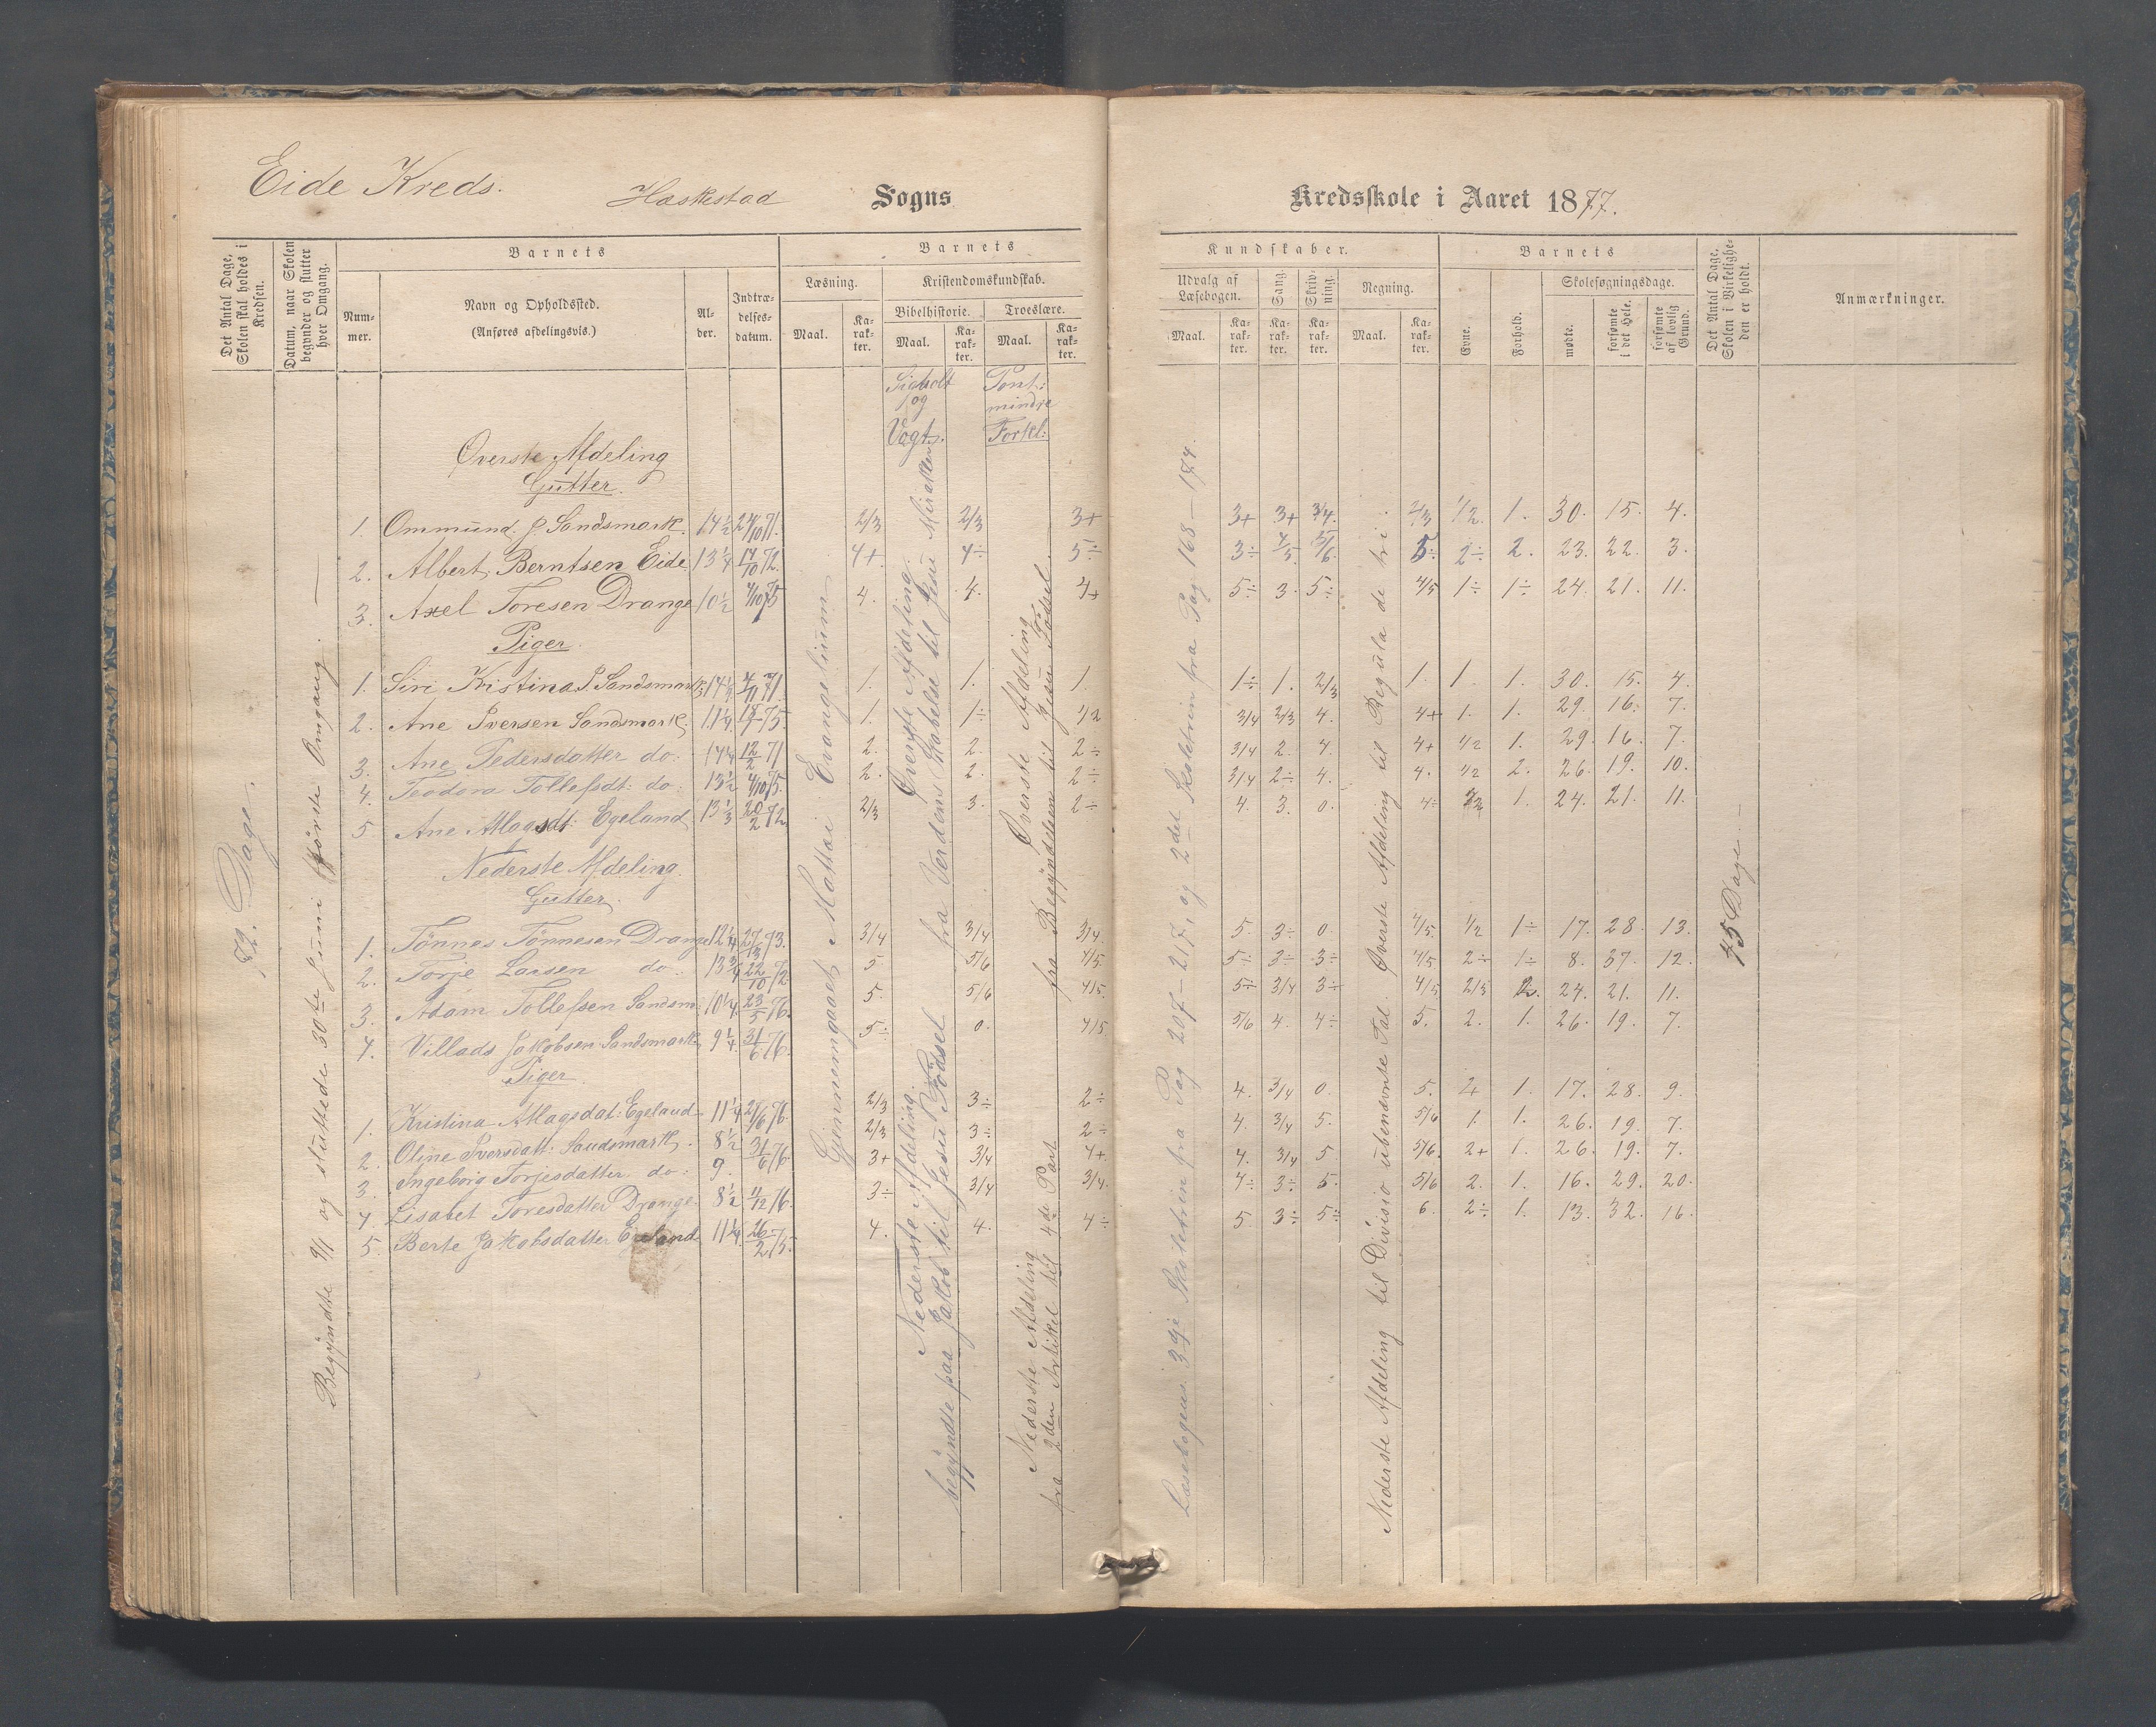 Eide Kreds.
Haskestad Sogns
Kredsskole i Aaret 1877.
Det Antal Dage, Skolen skal holdes i Kredsen.
Datum, naar Skolen begynder og slutter hver Omgang.
Barnets
Nummer.
Navn og Opholdssted.
(Anføres afdelingsvis.)
Alder.
Indtrædelsesdatum.
Barnets
Læsning.
Maal.
Karakter.
Kristendomskundskab.
Bibelhistorie.
Maal.
Karakter.
Troeslære.
Maal.
Karakter.
Kundskaber.
Udvalg af Læsebogen.
Maal.
Karakter.
Sang.
Karakter.
Skrivning.
Karakter.
Regning.
Maal.
Karakter.
Barnets
Evne.
Forhold.
Skolesøgningsdage.
mødte.
forsømte i det Hele.
forsømte af lovlig Grund.
Det Antal Dage, Skolen i Virkeligheden er holdt.
Anmærkninger.
og
Vogts.
Pont:
Forkl:
72. Dage.
og sluttede 30te Juni første Omgang.
Gjennemgaaet Mattæi Evangelium
Øverste Afdeling
fra Verdens Skabelse til Jesu Mirakler
Nederste Afdeling
begyndte paa Jakob til Jesu Fødsel
Øverste Afdeling
fra Begyndelsen til Jesu Fødsel
Nederste Afdeling
fra 2den Artikel til 4de Part
Læsebogens 3die fra Pag 207-217, og 2det fra Pag 168-174.
Øverste Afdeling til Regula de tri.
Nederste Afdeling til Divisio ubenævnte Tal.
45 Dage
Øverste Afdeling
Gutter.
1. Ommund P. Sandsmark. 14½ 24/10 71. 2/3 2/3 3+ 3+ 3+ 3/4. 2/3 1/2. 1. 30. 15. 4.
2. Albert Berntsen Eide. 13¼ 14/10 72. 4+ 4÷ 5÷ 3÷ 4/5 5/6 5÷ 2÷ 2. 23. 22. 3.
3. Axel Toresen Drange 10½ 4/10 75 4. 4. 4+ 5÷ 3. 5÷ 4/5 1÷ 1÷ 24. 21. 11.
Piger.
1. Siri Kristina P. Sandsmark 1. 1. 1. 1÷ 1. 2/3 1. 1. 1. 30. 15. 4.
2. Ane Iversen Sandsmark. 11¼ 1. 1÷ 1/2 3/4 2/3 4. 4+ 1. 1. 29. 16. 7.
3. Ane Pedersdatter do: 14¼ 12/2 71 2. 2. 2÷ 3/4 2. 4. 4+ 1/2 1. 29. 16. 7.
4. Teodora Tollefsdt: do: 13½ 4/10 75. 2. 2. 2÷ 3/4 2÷ 4. 4. 1/2 2. 26. 19. 10.
5. Ane Atlagsdt: Egeland 13⅓ 20/2 72 2/3 3. 2÷ 4. 3. 0. 4÷ 1. 24. 21. 11.
Nederste Afdeling.
Gutter.
1. Tönnes Tönnesen Drange 12¼ 3/4 3/4 3/4. 5. 3÷ 0. 4/5. 1/2 1÷ 17. 28. 13.
2. Torje Larsen do: 13¾ 22/10 72 5 5/6 4/5. 5÷ 3÷ 3÷ 4/5 2÷ 1÷ 8. 37. 12.
3. Adam Tollefsen Sandsm. 10¼ 23/5 76. 5. 5/6 4/5. 5÷ 3/4 3÷ 4/5 2/3 2. 24. 21. 11.
4. Villads Jakobsen Sandsmark 9¼ 31/6 76. 5÷ 0. 4/5 5/6 4. 4÷ 5. 2. 1. 26. 19. 7.
Piger
1. Kristina Atlagsdat: Egeland 11¼ 2/3 3÷ 2÷ 4. 3/4 0. 5. 2+ 1. 17. 28. 9.
2. Oline Iversdatt: Sandsmark. 8½ 31/6 76 2/3 3÷ 2÷ 4. 3/4 5. 5/6 1. 1. 26. 19. 7.
3. Ingeborg Torjesdatter do: 9. 3+ 3/4 4+ 4. 3/4 5 5/6. 2+ 1. 26. 19. 7.
4. Lisabet Toresdatter Drange 8½ 11/12 76. 3÷ 3/4 3/4. 4÷ 3÷ 5. 5/6 2. 1. 16. 29. 20.
5. Berte Jakobsdatter Egeland 11¼ 26/2 75. 4. 4. 4÷ 5 3÷ 5÷ 6. 2÷ 1. 13. 32. 16.